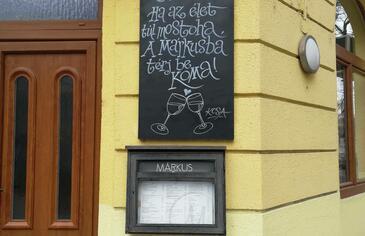 Ha az élet
túl mostoha,
A Márkusba
térj be
Koma!
MÁRKUS